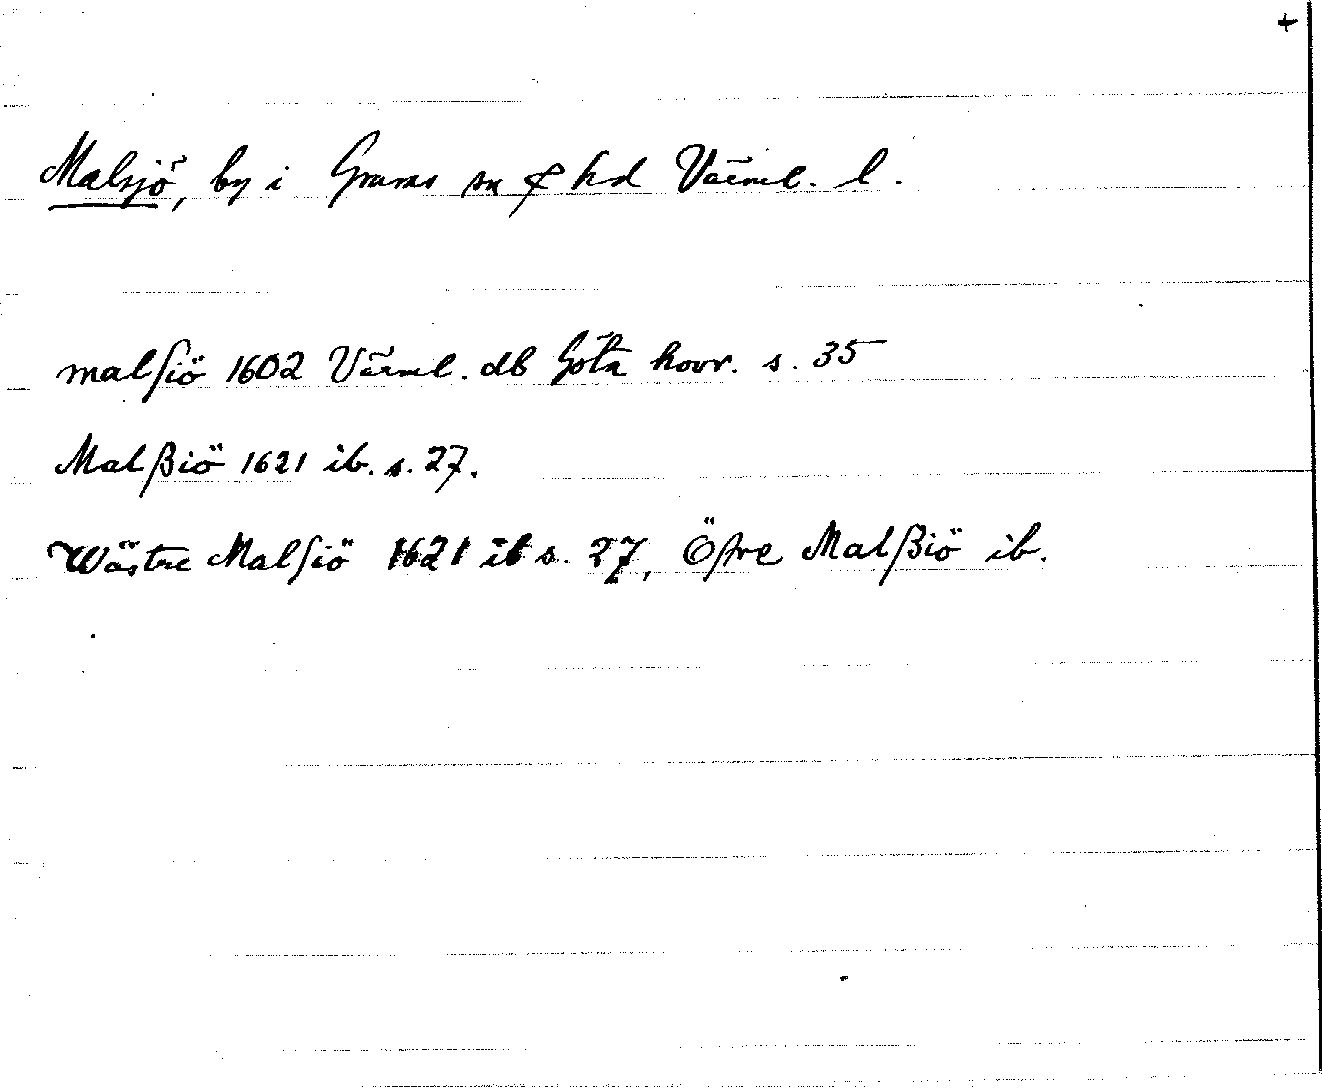 +
Malsjö, by i Grums sn & hd Värml. l.
malſiö 1602 Värml. db Göta hovr. s. 35
Malßiö 1621 ib. s. 27.
Wästre Malſiö 1621 ib s. 27, Öfre Malßiö ib.